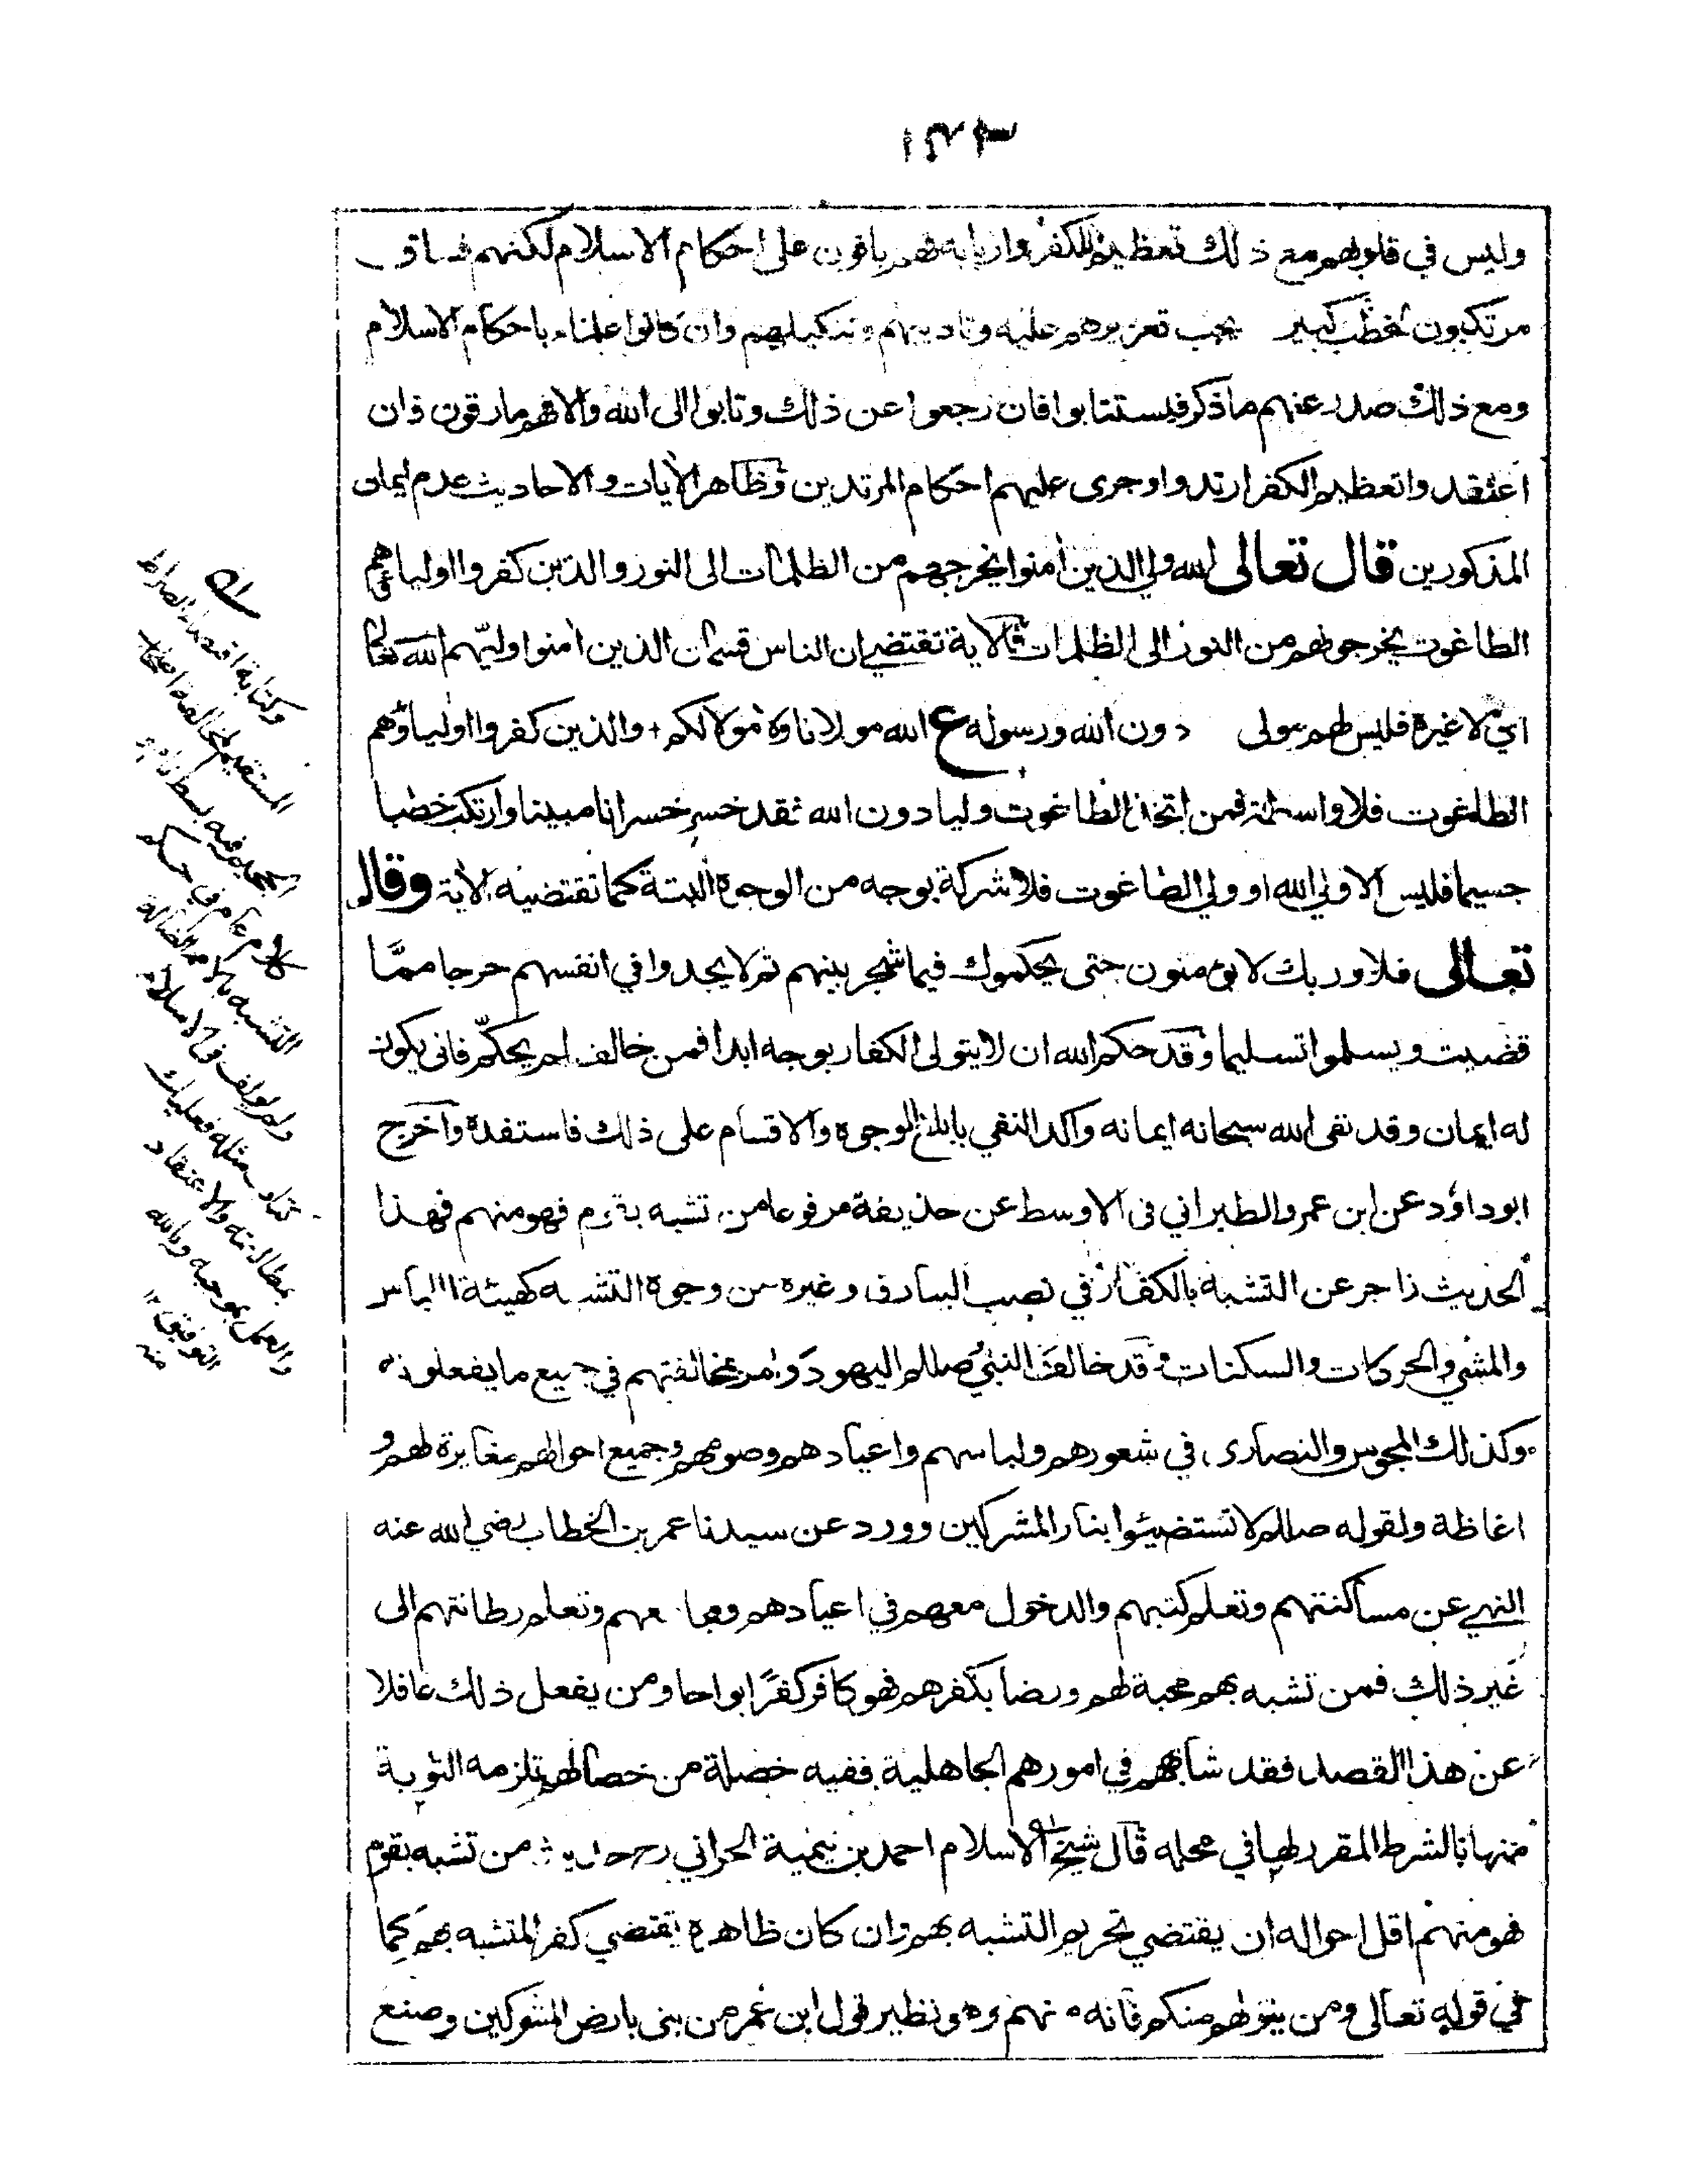 وليس في قلوبهم مع ذلك تعظيم للكفر واربابه فهم باقون على احكام الاسلام لكنهم فساق
مرتكبون لخطب كبير يجب تعزيرهم عليه وتاديبهم وتنكيلهم وان كانوا علماء باحكام الاسلام
ومع ذلك صدر عنهم ما ذكر فيستتابوا فان رجعوا عن ذلك وتابوا الى الله والا فهم مارقون فان
اعتقدوا تعظيم الكفر ارتدوا وجرى عليهم احكام المرتدين وظاهر الآيات والاحاديث عدم ايمان
المذكورين قال تعالى الله ولي الذين آمنوا يخرجهم من الظلمات الى النور والذين كفروا اولياءهم
الطاغوت يخرجونهم من النور الى الظلمات فالآية تقتضي ان الناس قسمان الذين آمنوا وليّهم الله تعالى
اي لا غيره فليس لهم مولى دون الله ورسوله ع الله مولانا ولا مولا لكم + والذين كفروا اولياؤهم
الطاغوت فلا واسطة فمن اتخذ الطاغوت وليا دون الله فقد خسر خسرانا مبينا وارتكب خطبا
جسيما فليس الا ولي الله او ولي الطاغوت فلا شركة بوجه من الوجوه البتة كما تقتضيه الآية وقال
تعالى فلا وربك لا يؤمنون حتى يحكموك فيما شجر بينهم ثم لا يجدوا في انفسهم حرجا ممّا
قضيت ويسلموا تسليما وقد حكم الله ان لا يتولى الكفار بوجه ابدا فمن خالف لم يحكّم فانى يكون
له ايمان وقد نفى الله سبحانه ايمانه واكد النفي بابلغ الوجوه والاقسام على ذلك فاستفده واخرج
ابو داؤد عن ابن عمر والطبراني في الاوسط عن حذيفة مرفوعا من تشبه بقوم فهو منهم فهذا
الحديث زاجر عن التشبه بالكفار في نصب البيارق وغيره من وجوه التشبه كهيئة اللباس
والمشي والحركات والسكنات وقد خالف النبي صللم اليهود وامر بمخالفتهم في جميع ما يفعلونه
وكذلك المجوس والنصارى في شعورهم ولباسهم واعيادهم وصومهم وجميع احوالهم مغايرة لهم و
اغاظة ولقوله صللم لا تستضيئوا بنار المشركين وورد عن سيدنا عمر بن الخطاب رضي الله عنه
النهي عن مساكنتهم وتعلم كتبهم والدخول معهم في اعيادهم وتعلم رطانتهم الى
غير ذلك فمن تشبه بهم محبة لهم ورضا بكفرهم فهو كافر كفرًا بواحا ومن يفعل ذلك غافلا
عن هذا القصد فقد شابههم في امورهم الجاهلية ففيه خصلة من خصالهم تلزمه التوبة
منها بالشرط المقرر لها في محله قال شيخ الاسلام احمد بن تيمية الحراني رح حديث من تشبه بقوم
فهو منهم اقل احواله ان يقتضي تحريم التشبه بهم وان كان ظاهره يقتضي كفر المتشبه بهم كما
في قوله تعالى ومن يتولهم منكم فانه منهم وهو نظير قول ابن عمر من بنى بارض المشركين وصنع
وكتابة اقتضاء الصراط
المستقيم لمخالفة اصحاب
الجحيم فيه بسط
كلام عام في حكم
التشبه بالامم الضالة
ولم يؤلف في الاسلام
كتاب مثله فعليك
بمطالعته والاعتقاد
والعمل بموجبه وبالله
التوفيق ١٢
منه